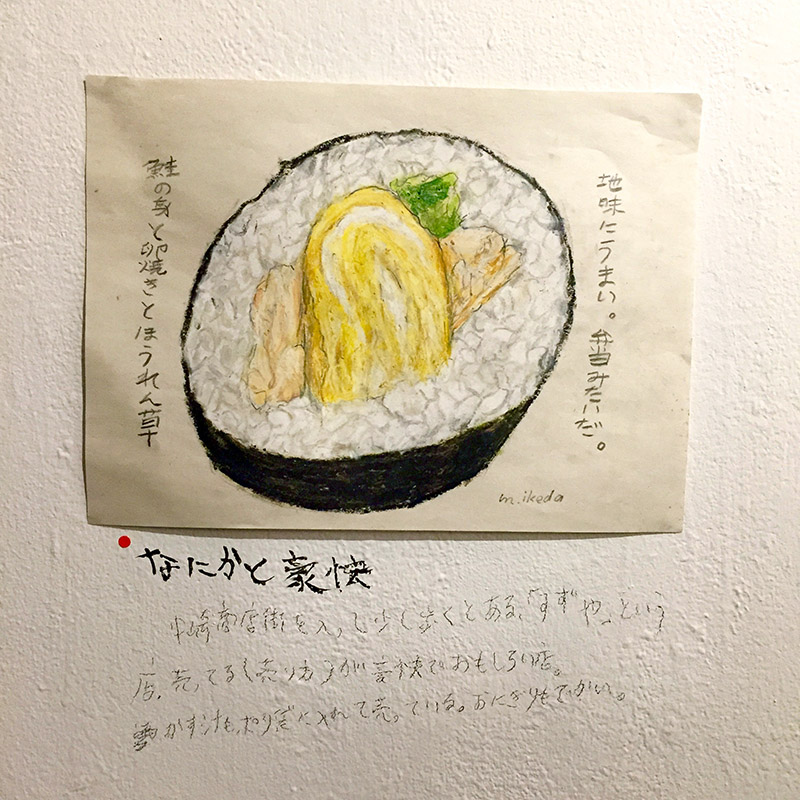 地味にうまい。弁当みたいだ。
鮭の身と卵焼きとほうれん草
m.ikeda
なにかと豪快
崎商店街を入って少し歩くとある、「すずや」という
店。売ってる 売り方が豪快でおもしろい店。
かす汁も に入れて売っている。おにぎりもでかい。